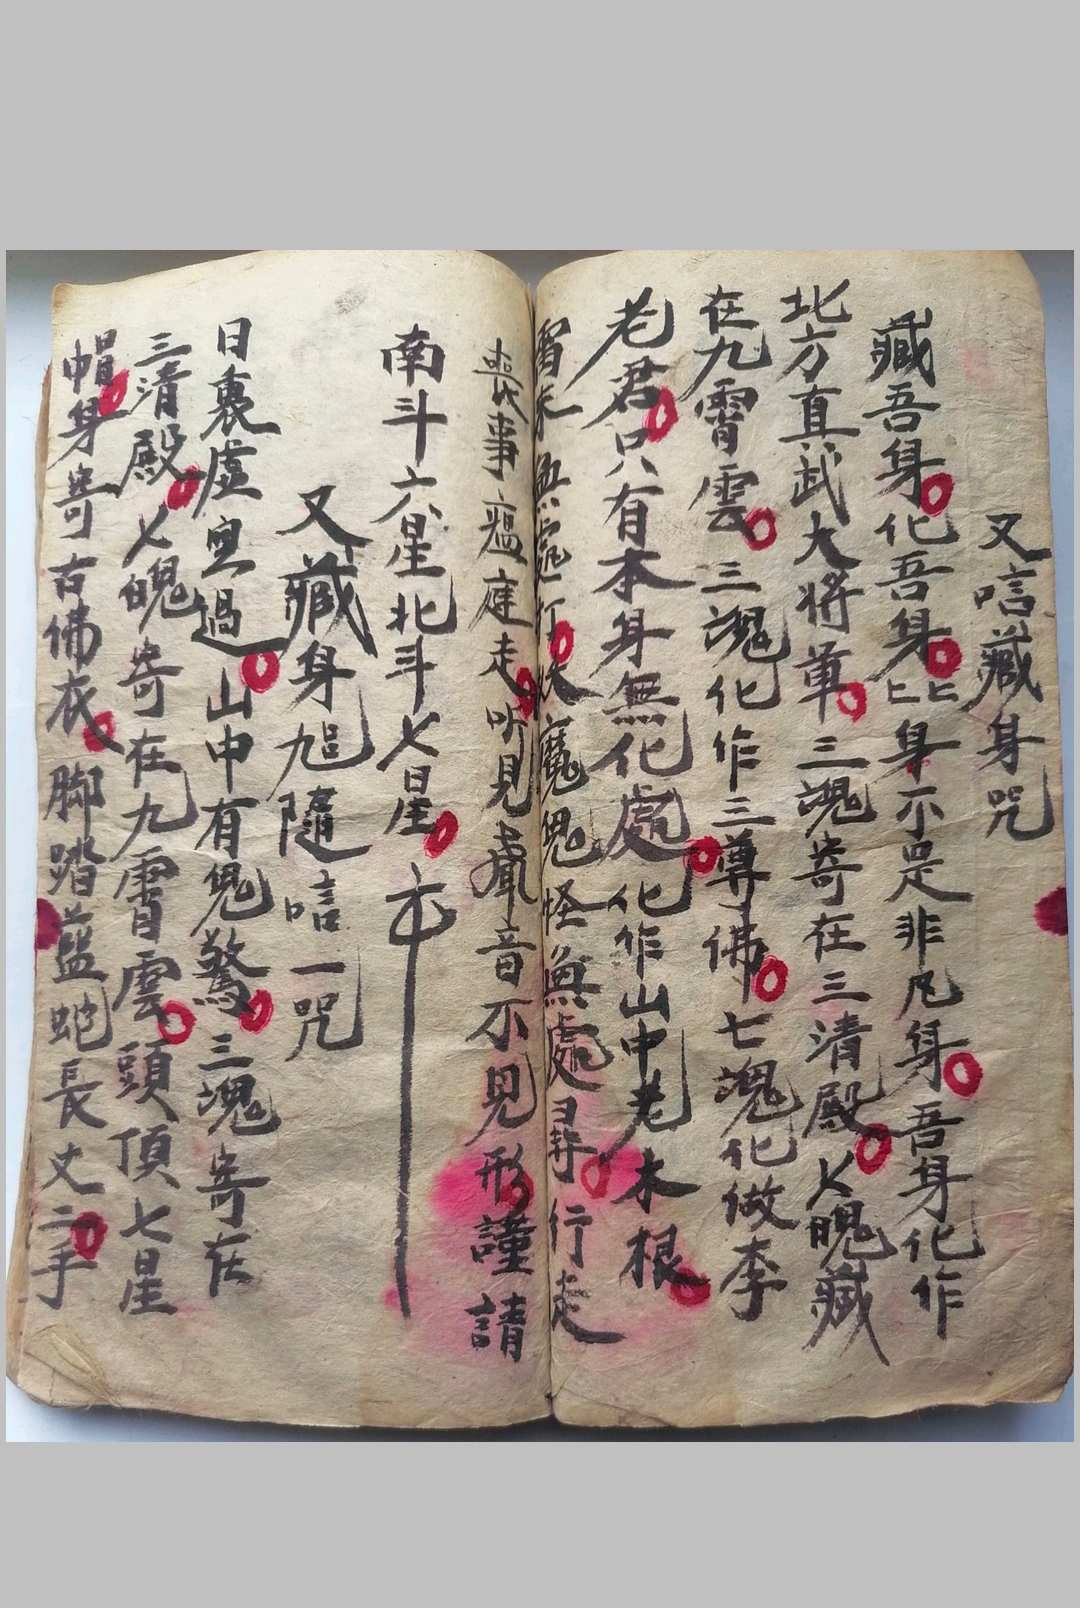 又唁藏身咒
藏吾身化吾身匕比身不是非凡身吾身化作
北方真武大将軍三魂寄在三清殿七魄藏
在九霄雲三魂化作三尊佛七魂化做李
老君只有本身無化處化作山中老木根
無處打妖魔鬼怪無處尋行走
丧事瘟瘽走听見聲音不見形謹請
南斗六星北斗七星
又藏身起隨唁一咒
日裏虛空過山中有鬼驚三魂寄在
三清殿七魄寄在九霄雲頭頂七星
帽身寄古佛衣脚踏藍蛇長丈二手